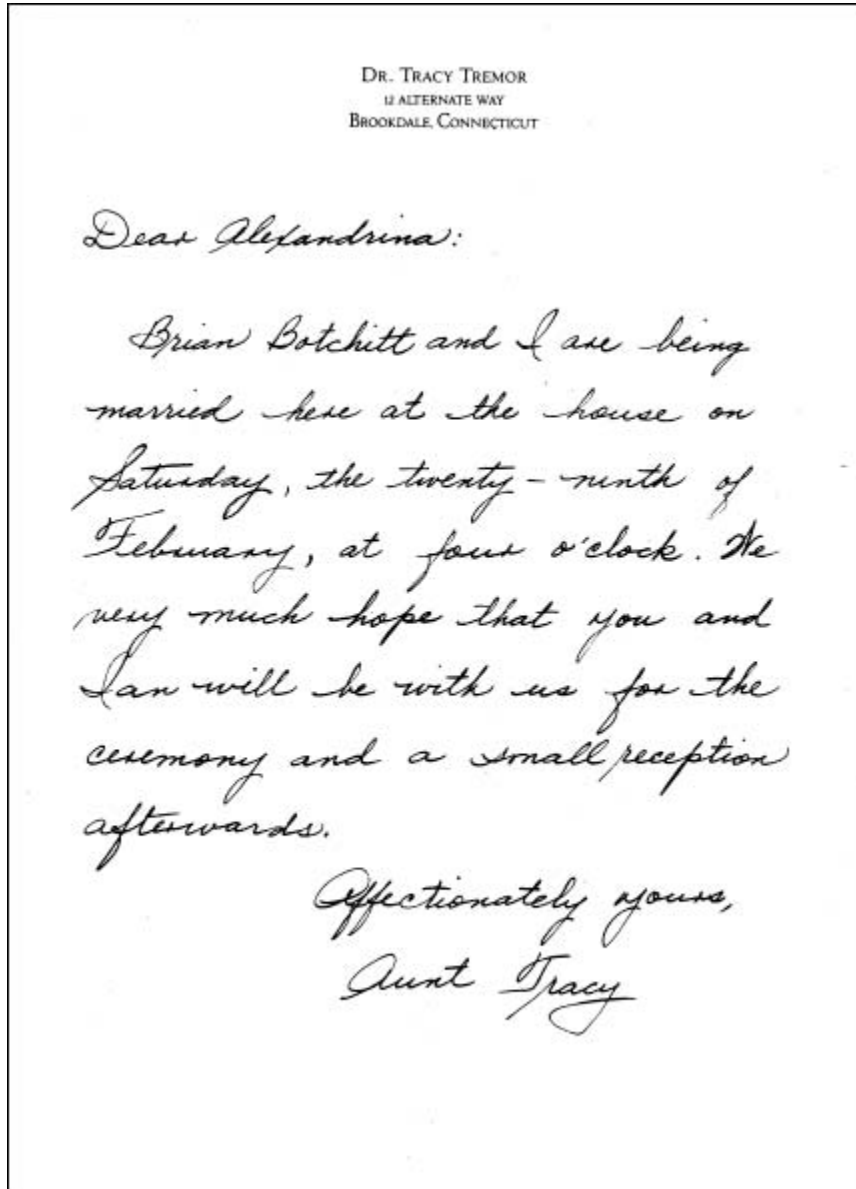 DR. TRACY TREMOR
12 ALTERNATE WAY
BROOKDALE, CONNECTICUT
Dear Alexandrina:
Brian Botchitt and I are being
married here at the house on
Saturday, the twenty-ninth of
February, at four o'clock. We
very much hope that you and
Ian will be with us for the
ceremony and a small reception
afterwards.
Affectionately yours,
Aunt Tracy